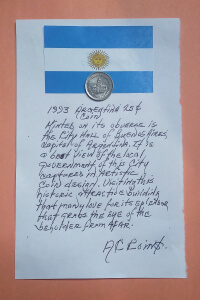 1993 Argentina 25¢
Coin
Minted on its obverse is
the City Hall of Buenos Aires,
capital of Argentina. It is
a best view of the local
government of this City
captured in Artistic
Coin design. Visiting this
historic attractive building
that many love for its splendor
that grabs the eye of the
beholder from afar.